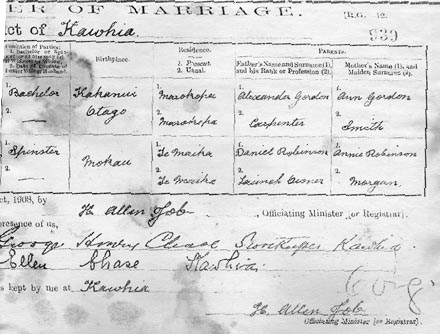 ER OF MARRIAGE.
R.G. 12.
ct of Kawhia.
939
Condition of Parties:
Birthplace.
Residence.
1. Present.
2. Usual.
PARENTS.
Father's Name and Surname (1), and his Rank or Profession (2).
Mother's Name (1), and Maiden Surname (2).
Bachelor
Kakanui
Otago
1. Marokopa
2. Marokopa
1. Alexander Gordon
2. Carpenter
1. Ann Gordon
2. Smith
Spinster
Mokau
1. Te Maika
2. Te Maika
1. Daniel Robinson
2. Launch Owner
1. Annie Robinson
2. Morgan.
ct, 1908, by
H. Allen Job , Officiating Minister (or Registrar).
presence of us,
George Chase Storekeeper Kawhia
Ellen Chase Kawhia
s kept by me at Kawhia
H. Allen Job
Officiating Minister (or Registrar).